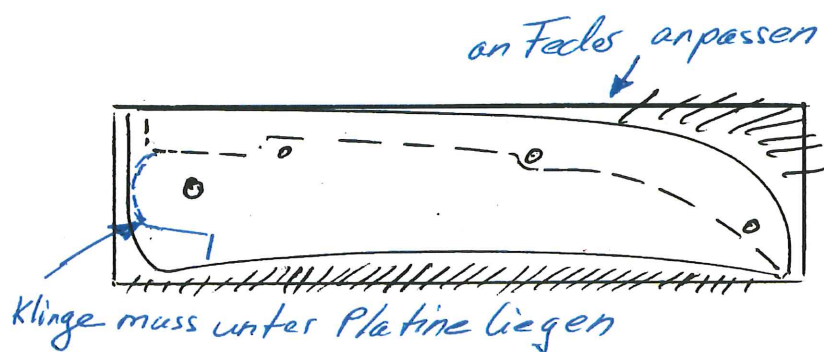 an Feder anpassen
Klinge muss unter Platine liegen